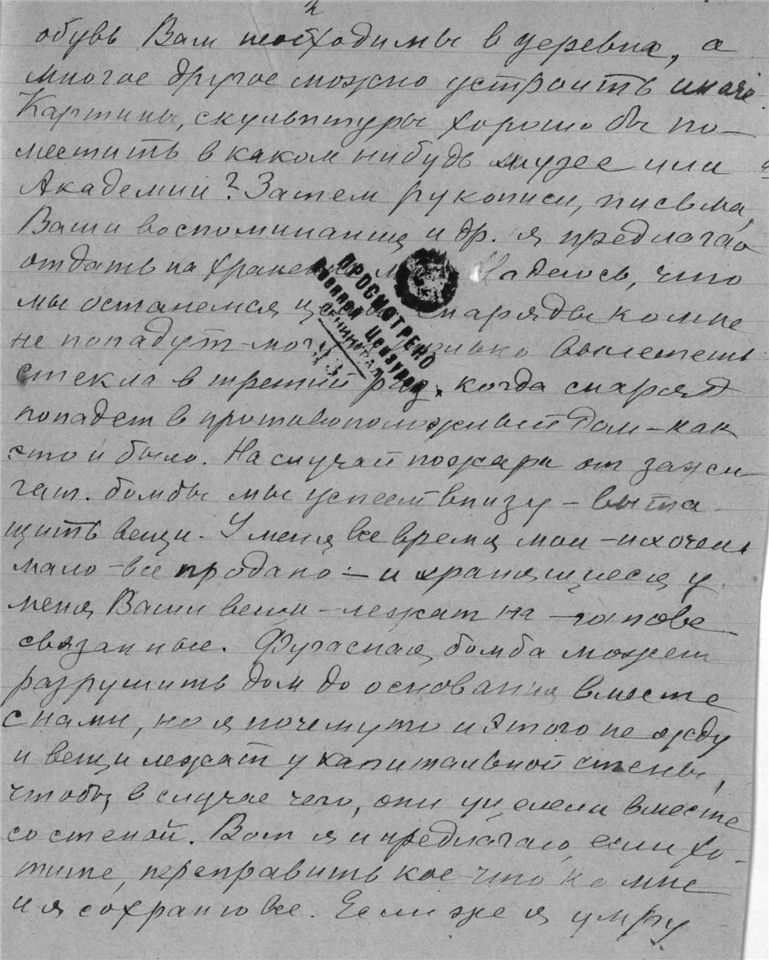 обувь Вам необходимы в деревне, а
многое другое можно устроить иначе.
Картины, скульптуры хорошо бы по-
местить в каком нибудь музее или
Академии? Затем рукописи, письма,
Ваши воспоминания и др. я предлагаю
отдать на хранение Надеюсь, что
мы останемся снаряды ко мне
не попадут - могут только вылететь
стекла в третий раз, когда снаряд
попадет в противоположный дом - как
это и было. На случай пожара от зажи-
гат. бомбы мы успеем внизу - выта-
щить вещи. У меня все время мои - их очень
мало - все продано - и хранящиеся у
меня Ваши вещи - лежат на готове
связанные. Фугасная бомба может
разрушить дом до основания вместе
с нами, но я почему то и этого не жду
и вещи лежат у капитальной стены,
чтобы в случае чего, они уцелели вместе
со стеной. Вот я и предлагаю, если хо-
тите, переправить кое-что ко мне
и я сохраню все. Если же я умру
ПРОСМОТРЕНО
ВОЕННОЙ ЦЕНЗУРОЙ
ЛЕНИНГРАД